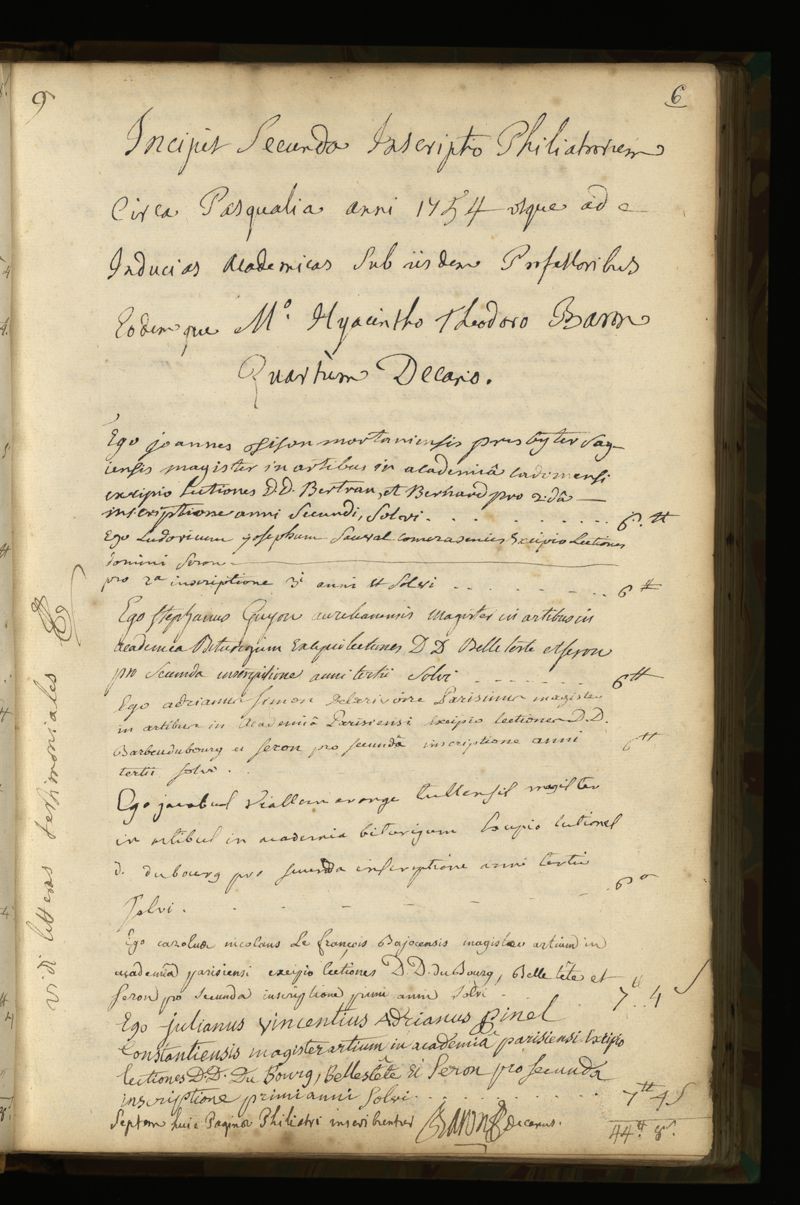 9
6
Incipit Secunda Inscriptio Philiatrorum
Circa Pasqualia anni 1754 usque ad
Inducias Academicas Sub iisdem Professoribus
Eodemque M.o Hyacintho Theodoro Baron
Quartùm Decano.
Ego joannes mortaniensis presbyter Sag-
iensis magister in artibus in academiâ cadomensi
excipio Lectiones D.D. Bertran, et Bernard pro 2.dâ
inscriptione anni Secundi, Solvi. . . . . . . . . . 6.tt
Ego Ludovicum josephum Sauval Excipio Lectiones
domini Seron
pro 2a inscriptione 3i anni tt Solvi . . . . . . . 6tt
Ego Stephanus Guyon aurelianensis magister in artibus in
academia Biturigum Excipio lectiones D D Belleteste et Seron
pro Secunda inscriptione anni tertii Solvi . . . . . . . 6tt
Ego adrianus Simon Delarivière Parisinus magister
in artibus in Academiâ Parisiensi Excipio lectiones D.D.
Barbeudubourg et Seron pro secundâ inscriptione anni
tertii solvi . 6tt
Ego jacobus tullensis magister
in artibus in academia biturigum Excipio lectiones
d. dubourg pro secunda inscriptione anni tertii
Solvi . - - - - - - - 6
Ego carolus nicolaus Le françois Bajocensis magister artium in
academiâ parisiensi excipio lectiones D.D. du Bourg, Belletête et
Seron pro secunda inscriptione primi anni Solvi . . . 7tt 4s
Ego julianus vincentius Adrianus pinel
Constantiensis magister artium in academiâ parisiensi Excipio
lectiones D.D. Du Bourg, Bellestête et Seron pro secunda
inscriptione primi anni Solvi. . . . . . . . . 7tt 4s
Septem huic Paginæ Philiatri inscribuntur Baron decanus. 44tt 8s.
vidi litteras testimoniales